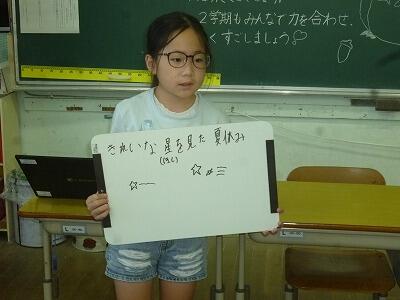 2学期もみんなで力を合わせ、
くすごしましょう
きれいな星を見た夏休み
(ほし)